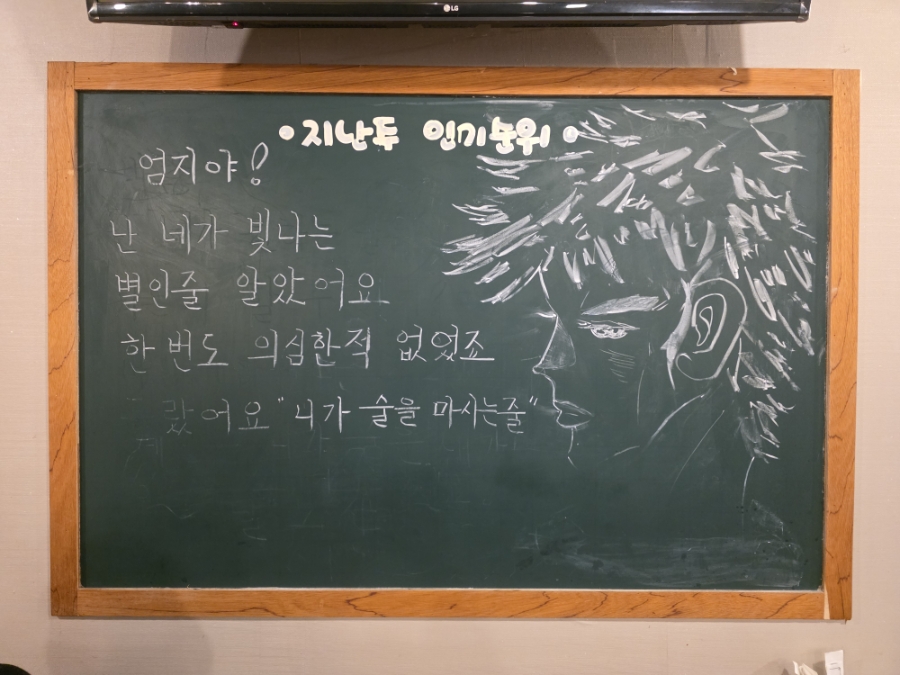 LG
지난주 인기순위
엄지야!
난 네가 빛나는
별인줄 알았어요
한번도 의심한적 없었죠
랐어요 "니가 술을 마시는줄"